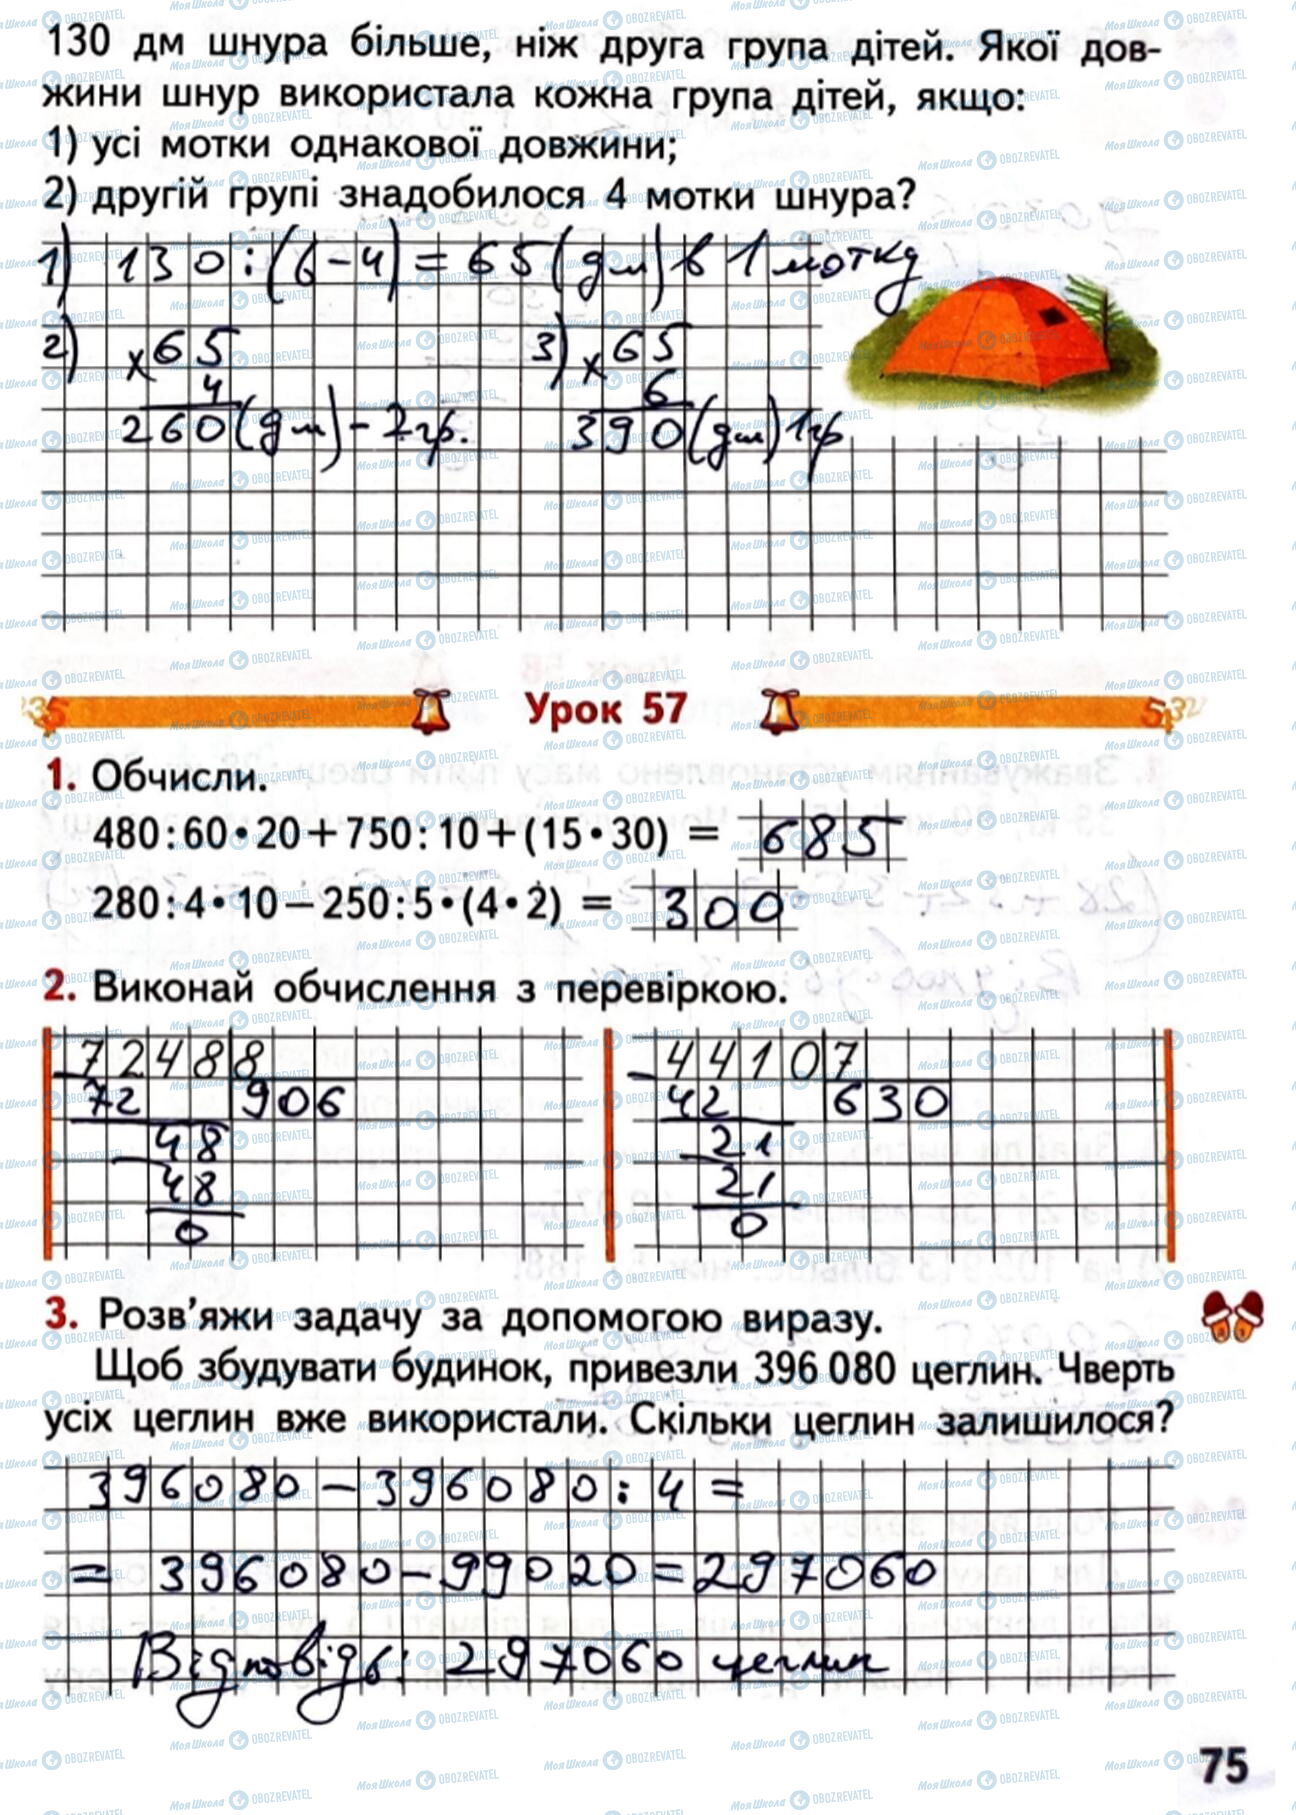 130 дм шнура більше, ніж друга група дітей. Якої дов-
жини шнур використала кожна група дітей, якщо:
1) усі мотки однакової довжини;
2) другій групі знадобилося 4 мотки шнура?
1) 130 : (6 - 4) = 65 (дм) в 1 мотку
2) × 65 3) × 65
4 6
260 (дм) - 2 гр. 390 (дм) 1 гр
Урок 57
1. Обчисли.
480 : 60 • 20 + 750 : 10 + (15 • 30) = 685
280 : 4 • 10 – 250 : 5 • (4 • 2) = 300
2. Виконай обчислення з перевіркою.
7248 8 4410 7
72 906 42 630
48 21
48 21
0 0
3. Розв’яжи задачу за допомогою виразу.
Щоб збудувати будинок, привезли 396 080 цеглин. Чверть
усіх цеглин вже використали. Скільки цеглин залишилося?
396080 - 396080 : 4 =
= 396080 - 99020 = 297060
Відповідь: 297060 цеглин
75
МояШкола OBOZREVATEL